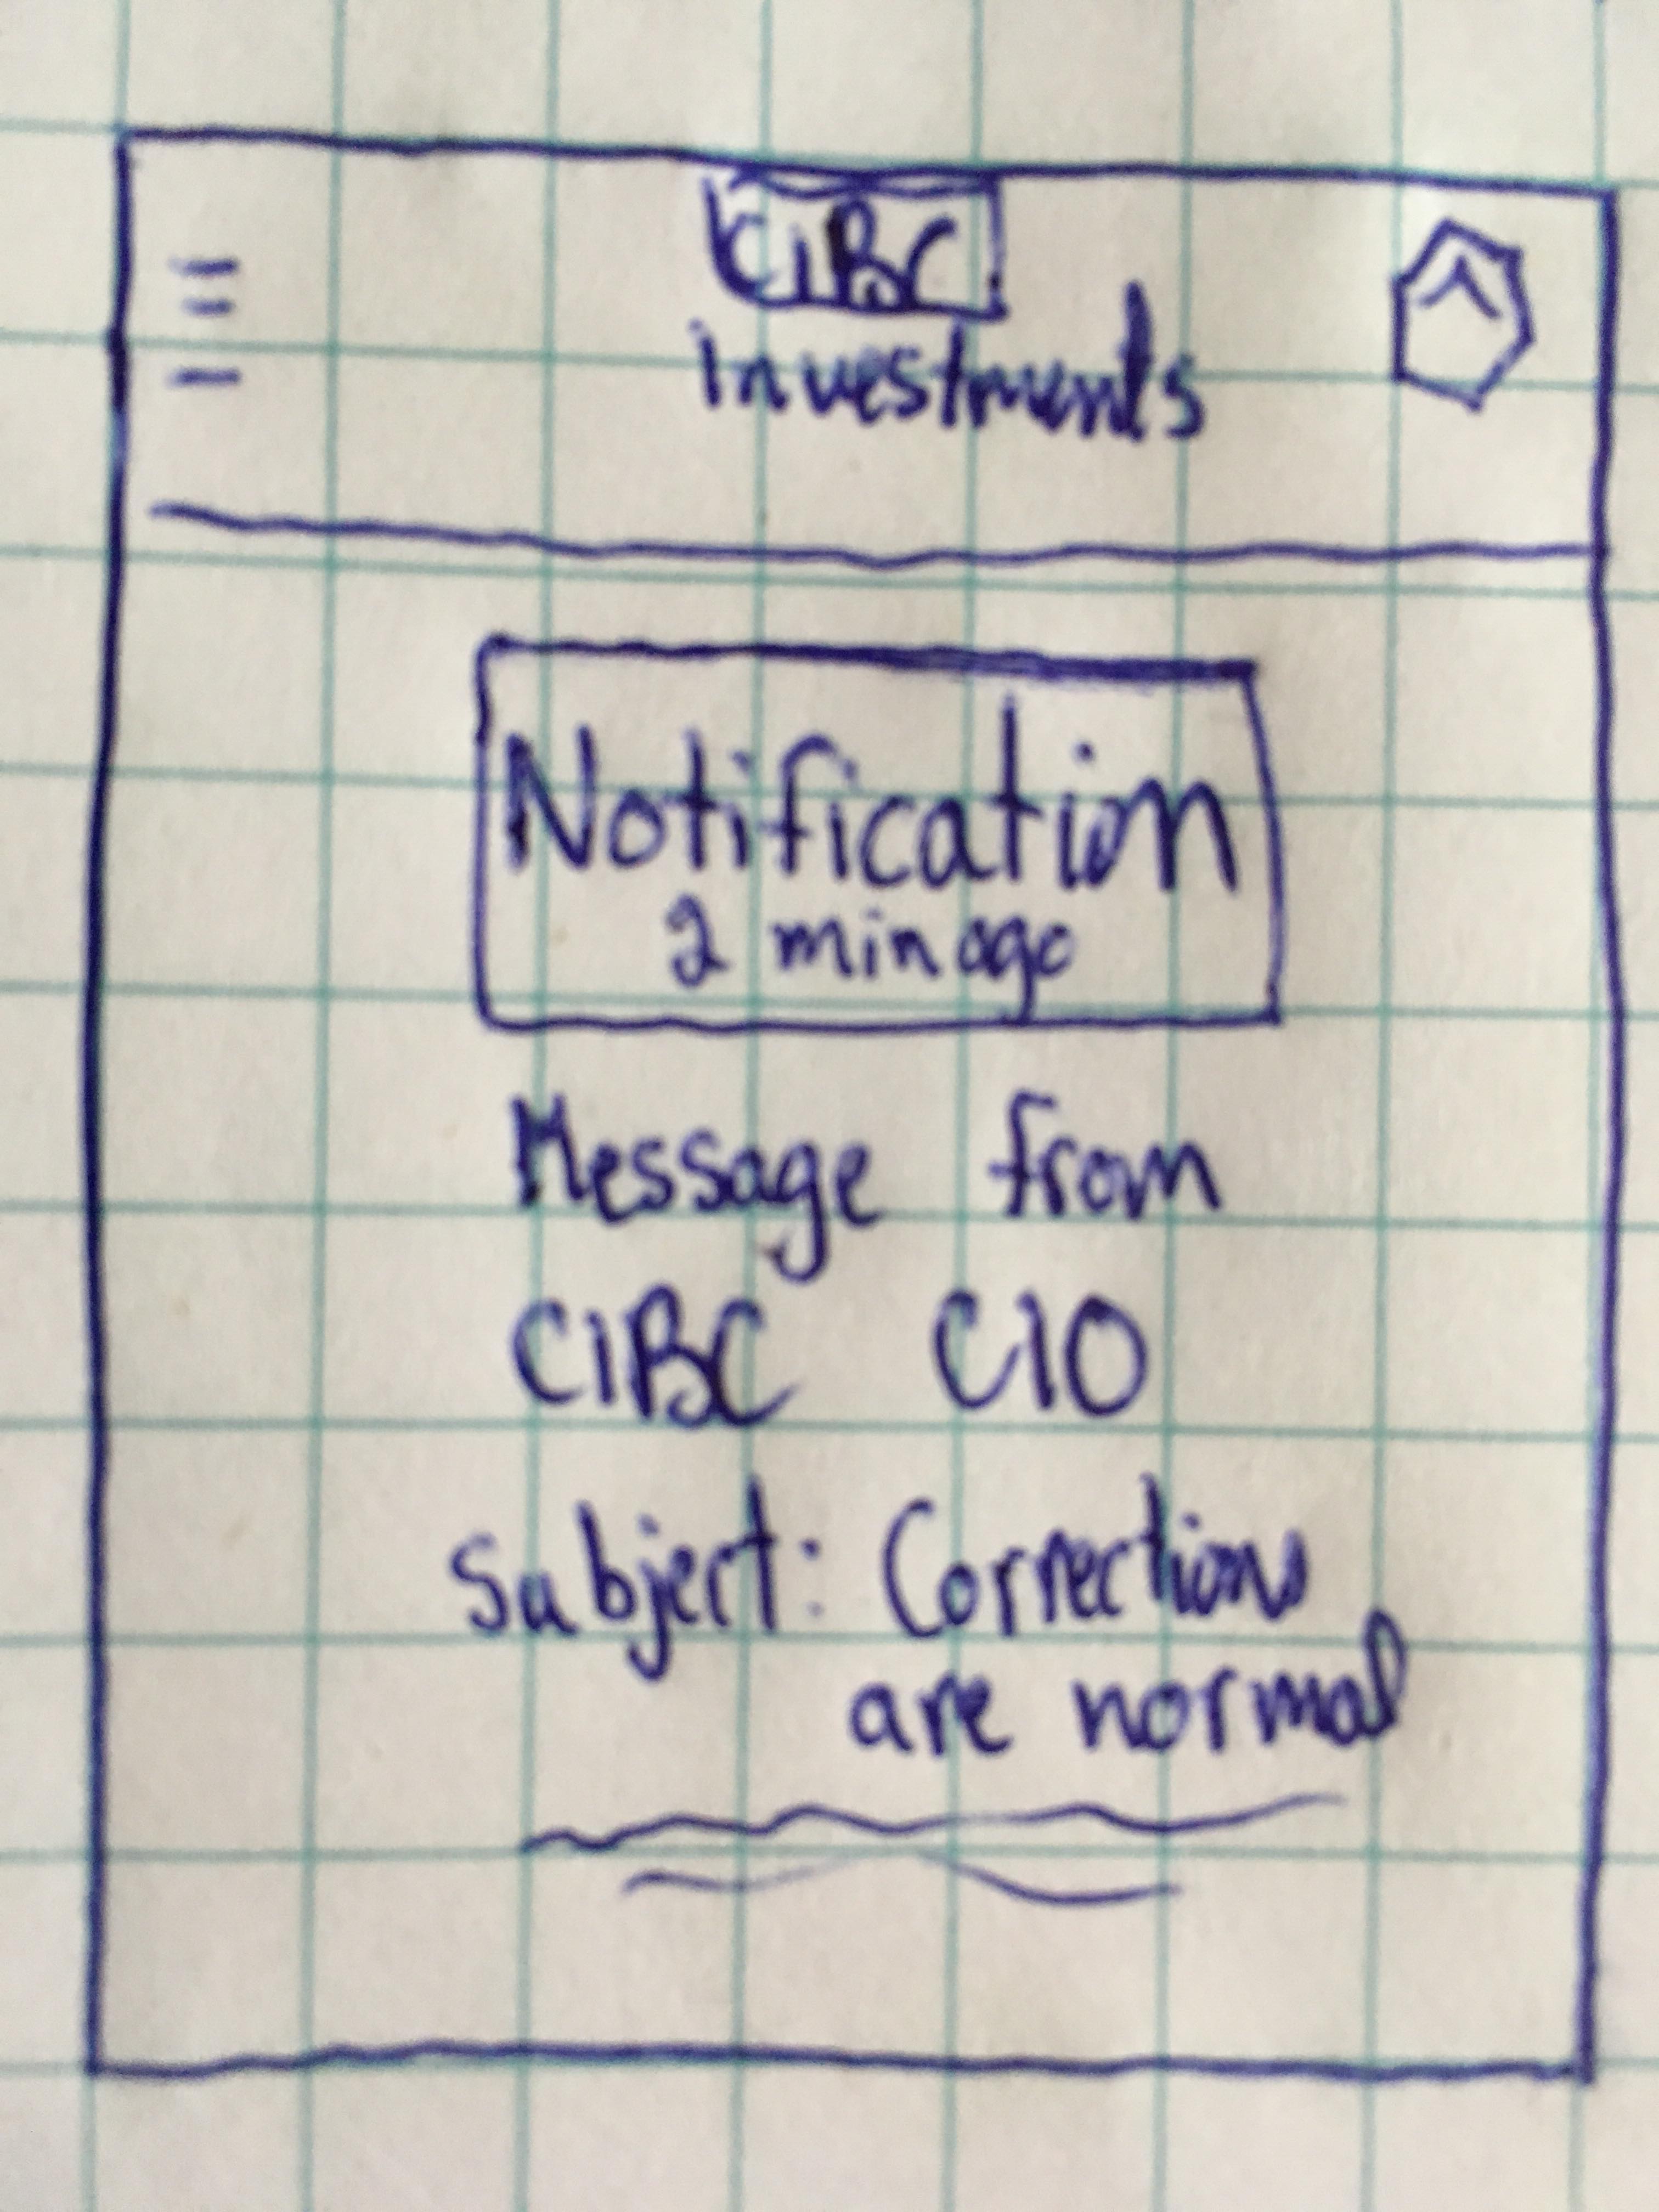 CIBC
investments
Notification
2 min ago
Message from
CIBC CIO
Subject: Corrections
are normal